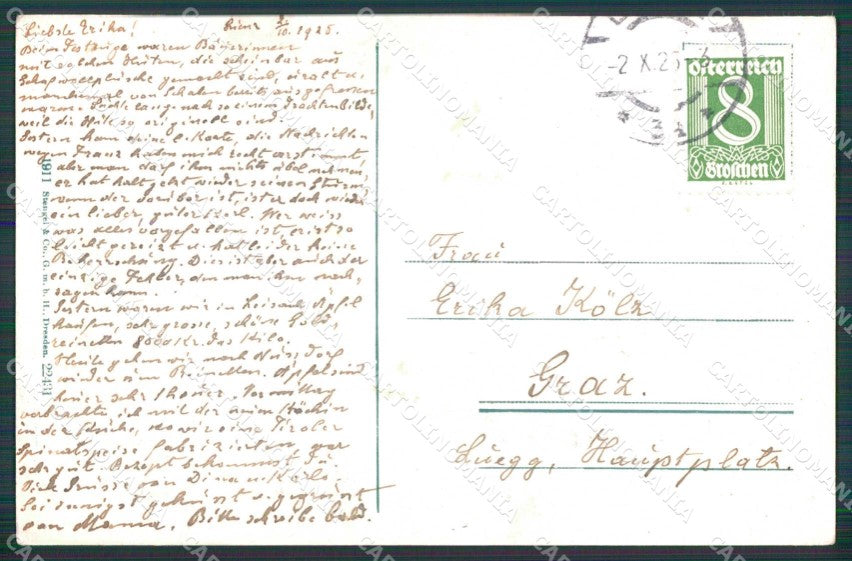 Liebste Erika! Lienz 2/10. 1925.
Beim Festzuge waren Bäuerinnen
mit solchen Hüten, die scheinbar aus
Schafwollplüsche gemacht sind, uralt u.
manchmal von Schaben bereits ausgefressen
waren. Suchte lange nach so einem Trachtenbilde,
weil die Hüte so originell sind.
Gestern kam deine l. Karte, die Nachrichten
wegen Franz haben mich recht verstimmt,
aber man darf ihm nichts übel nehmen,
er hat halt jetzt wieder seinen Sturm,
wenn der vorüber ist, ist er doch wieder
ein lieber, guter Kerl. Wer weiss
was alles vorgefallen ist, er ist so
leicht gereizt u. hat leider keine
Beherrschung. Dies ist aber auch der
einzige Fehler, den man ihm nach-
sagen kann.
Gestern waren wir in Leisach Äpfel
kaufen, sehr grosse, schöne Gold-
reinetten 8000 Kr. das Kilo.
Heute gehen wir nach Nussdorf
wieder um Apfel sind
heuer sehr theuer. Vormittag
verbrachte ich mit der Köchin
in der Küche, wo wir eine Tiroler
Spinatspeise fabrizierten, war
sehr gut. Rezept bekommst Du.
Viele Grüsse von Dina u. Karlo.
Sei innigst geküsst u. gegrüsst
von Mama. Bitte schreibe bald.
1911 Stengel & Co., G. m. b. H., Dresden. 22431
-2.X.25
Österreich
8
Groschen
Frau
Erika Kölz
Graz.
Luegg, Hauptplatz.
CARTOLINOMANIA